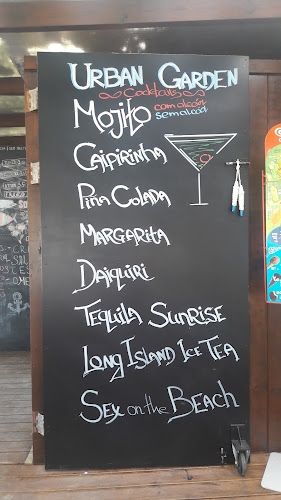 URBAN GARDEN
Cocktails
Mojito com álcool
sem álcool
CAIPIRINHA
PIÑA COLADA
MARGARITA
DAIQUIRI
TEQUILA SUNRISE
LONG ISLAND ICE TEA
SEX on the BEACH